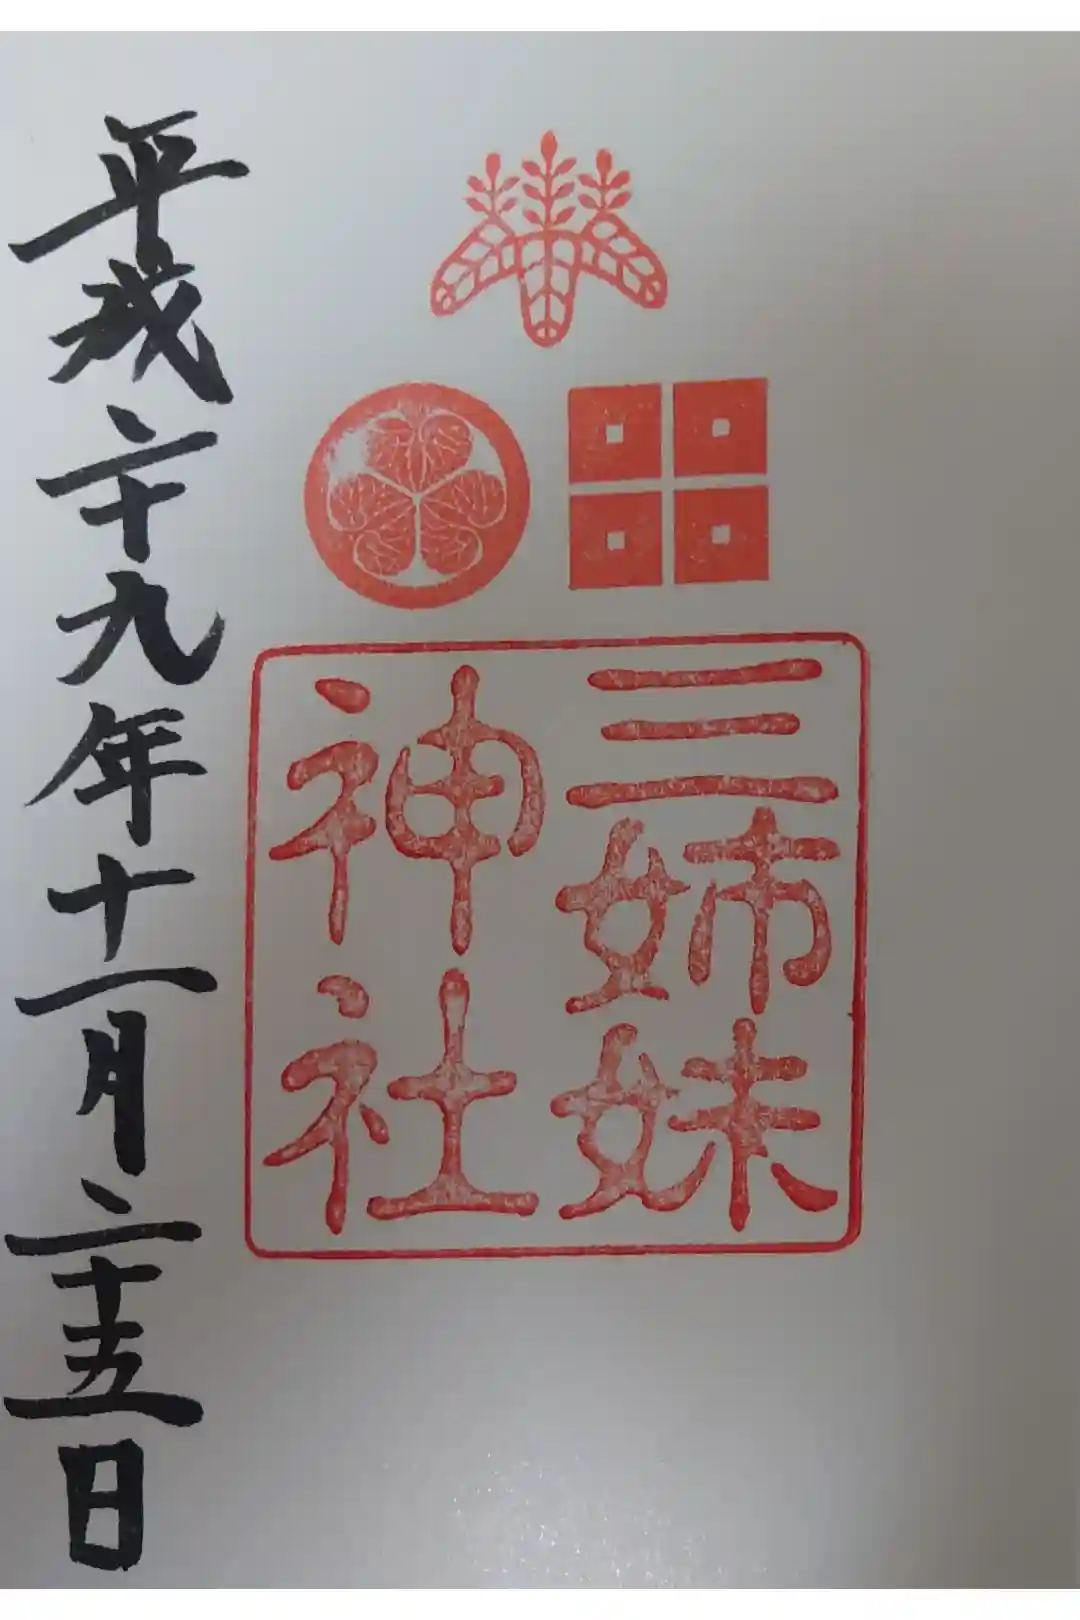 三姉妹
神社
平成二十九年十一月二十五日